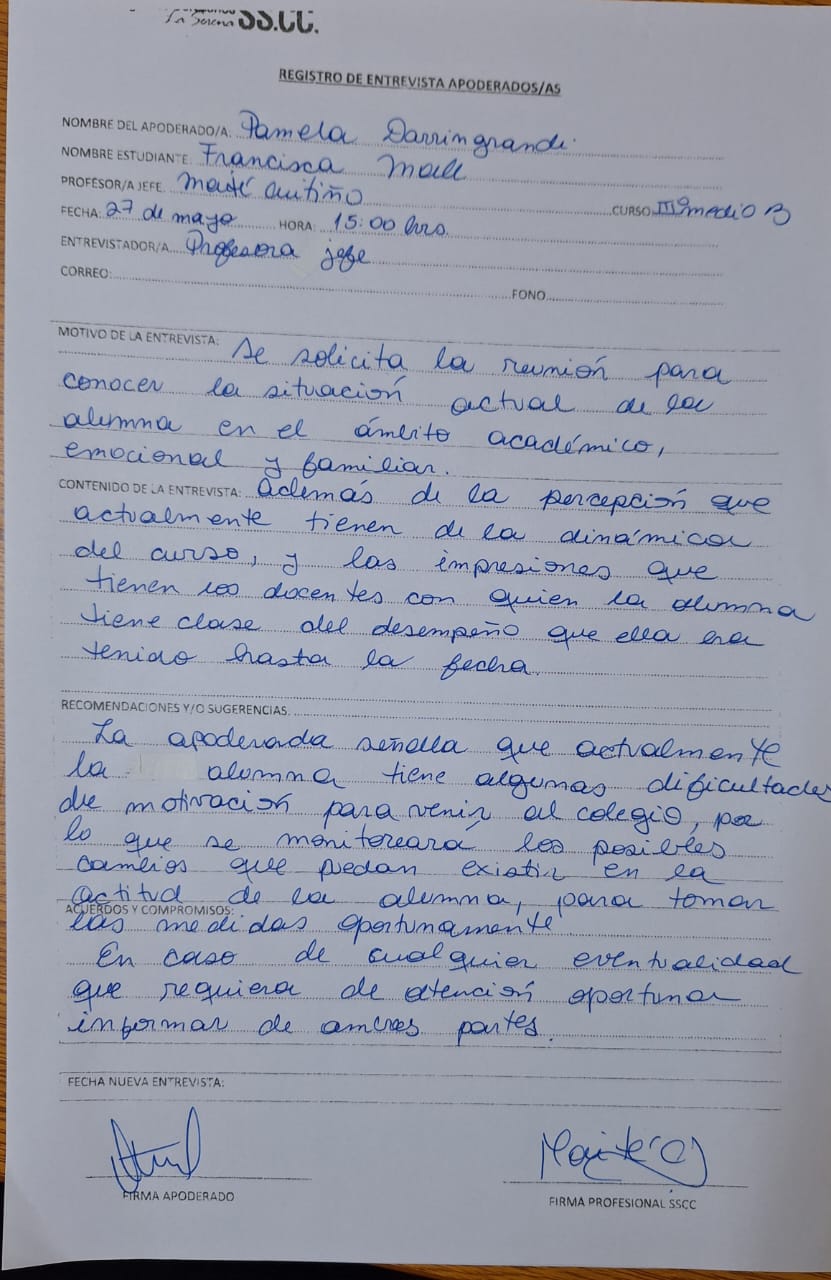 La Serena SS.CC.
REGISTRO DE ENTREVISTA APODERADOS/AS
NOMBRE DEL APODERADO/A: Pamela Darringrande
NOMBRE ESTUDIANTE: Francisca
PROFESOR/A JEFE: CURSO IIIº medio B
FECHA: 27 de mayo HORA: 15:00 hrs.
ENTREVISTADOR/A Profesora jefe
CORREO: FONO
MOTIVO DE LA ENTREVISTA: Se solicita la reunión para
conocer la situación actual de la
alumna en el ámbito académico,
emocional y familiar.
CONTENIDO DE LA ENTREVISTA: además de la percepción que
actualmente tienen de la dinámica
del curso, y las impresiones que
tienen los docentes con quien la alumna
tiene clase del desempeño que ella ha
tenido hasta la fecha.
RECOMENDACIONES Y/O SUGERENCIAS.
La apoderada señalla que actualmente
la alumna tiene algunas dificultades
de motivación para venir al colegio, por
lo que se monitoreará los posibles
cambios que puedan existir en la
actitud de la alumna, para tomar
ACUERDOS Y COMPROMISOS:
las medidas oportunamente
En caso de cualquier eventualidad
que requiera de atención oportuna
informar de ambas partes.
FECHA NUEVA ENTREVISTA:
FIRMA APODERADO
FIRMA PROFESIONAL SSCC